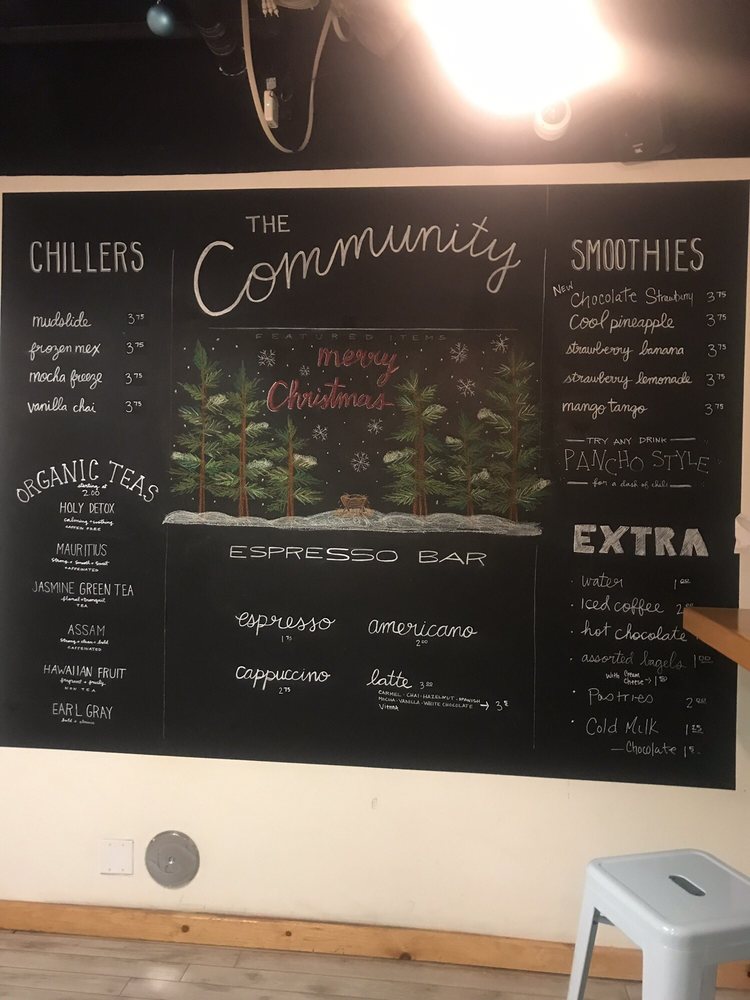 THE
Community
CHILLERS
mudslide 3 75
frozen mex 3 75
mocha freeze 3 75
vanilla chai 3 75
ORGANIC TEAS
starting at
2.00
HOLY DETOX
calming + soothing
CAFFEIN FREE
MAURITIUS
strong + smooth + sweet
CAFFEINATED
JASMINE GREEN TEA
floral + tranquil
TEA
ASSAM
strong + clean + bold
CAFFEINATED
HAWAIIAN FRUIT
fragrant + fruity
NON TEA
EARL GRAY
bold + classic
FEATURED ITEMS
merry
Christmas
ESPRESSO BAR
espresso
1 75
americano
2 00
cappuccino
2 75
latte 3 00
CARMEL - CHAI - HAZELNUT - SPANISH
MOCHA - VANILLA - WHITE CHOCOLATE → 3
Vienna
SMOOTHIES
NEW Chocolate Strawburry 3 75
Cool pineapple 3 75
strawberry banana 3 75
strawberry lemonade 3 75
mango tango 3 75
TRY ANY DRINK
PANCHO STYLE
for a dash of chili
EXTRA
· water 1 00
· Iced coffee 2
· hot chocolate
· assorted bagels 1 00
with Cream
Cheese → 1 80
· Pastries 2 00
· Cold Milk 1 25
— Chocolate 1